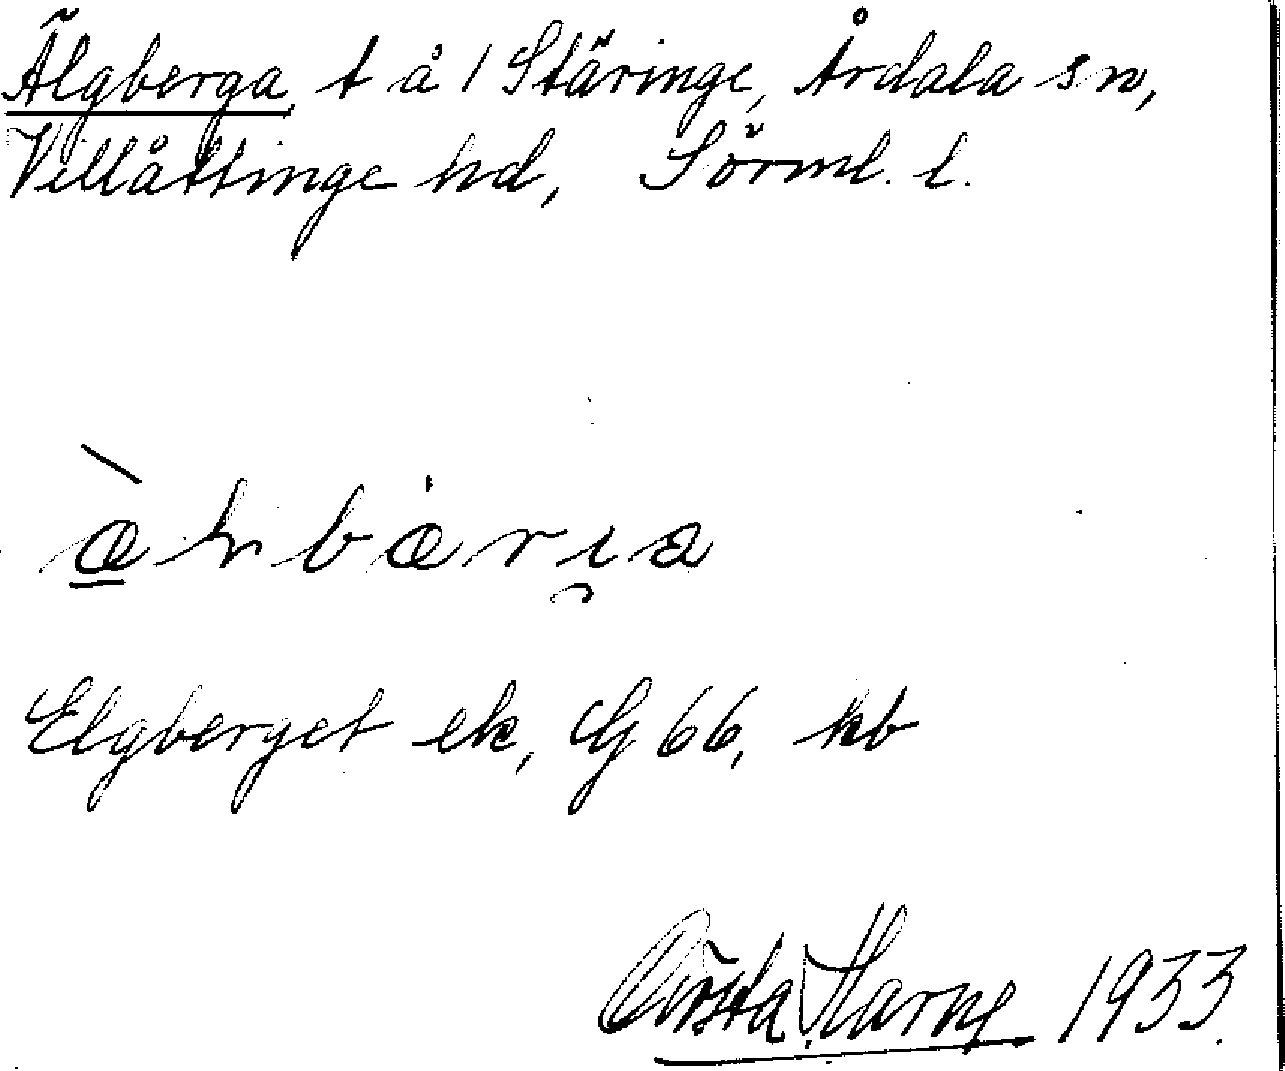 Älgberga, t å 1 Stäringe, Årdala sn,
Villåttinge hd, Sörml. l.
Elgberget ek, G 66, kb
Gösta 1933.